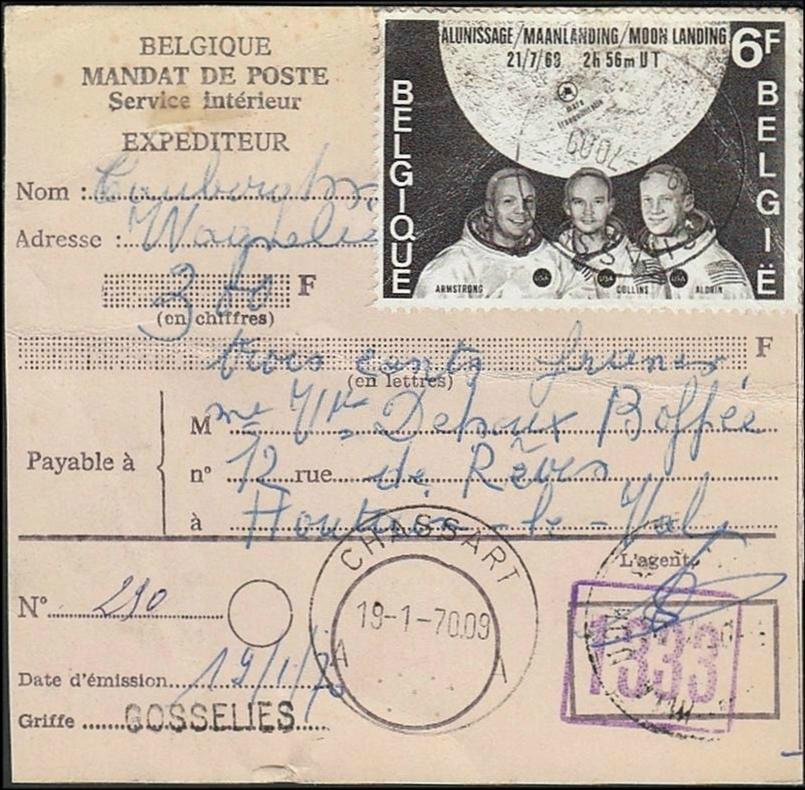 BELGIQUE
MANDAT DE POSTE
Service intérieur
EXPEDITEUR
Nom :
Adresse : Wagnelée
300 F
(en chiffres)
trois cents francs F
(en lettres)
Payable à
M me Vve Dehoux Boffée
n° 12 rue de Rêves
à Houtain-le-Val
L'agent,
N° 290
Date d'émission 19/1/70
Griffe GOSSELIES
CHASSART
19-1-70.09
A A
1333
ALUNISSAGE/MAANLANDING/MOON LANDING
21/7/69 2h 56m UT
6F
mare tranquillitatis
BELGIQUE
BELGIË
USA USA USA
ARMSTRONG COLLINS ALDRIN